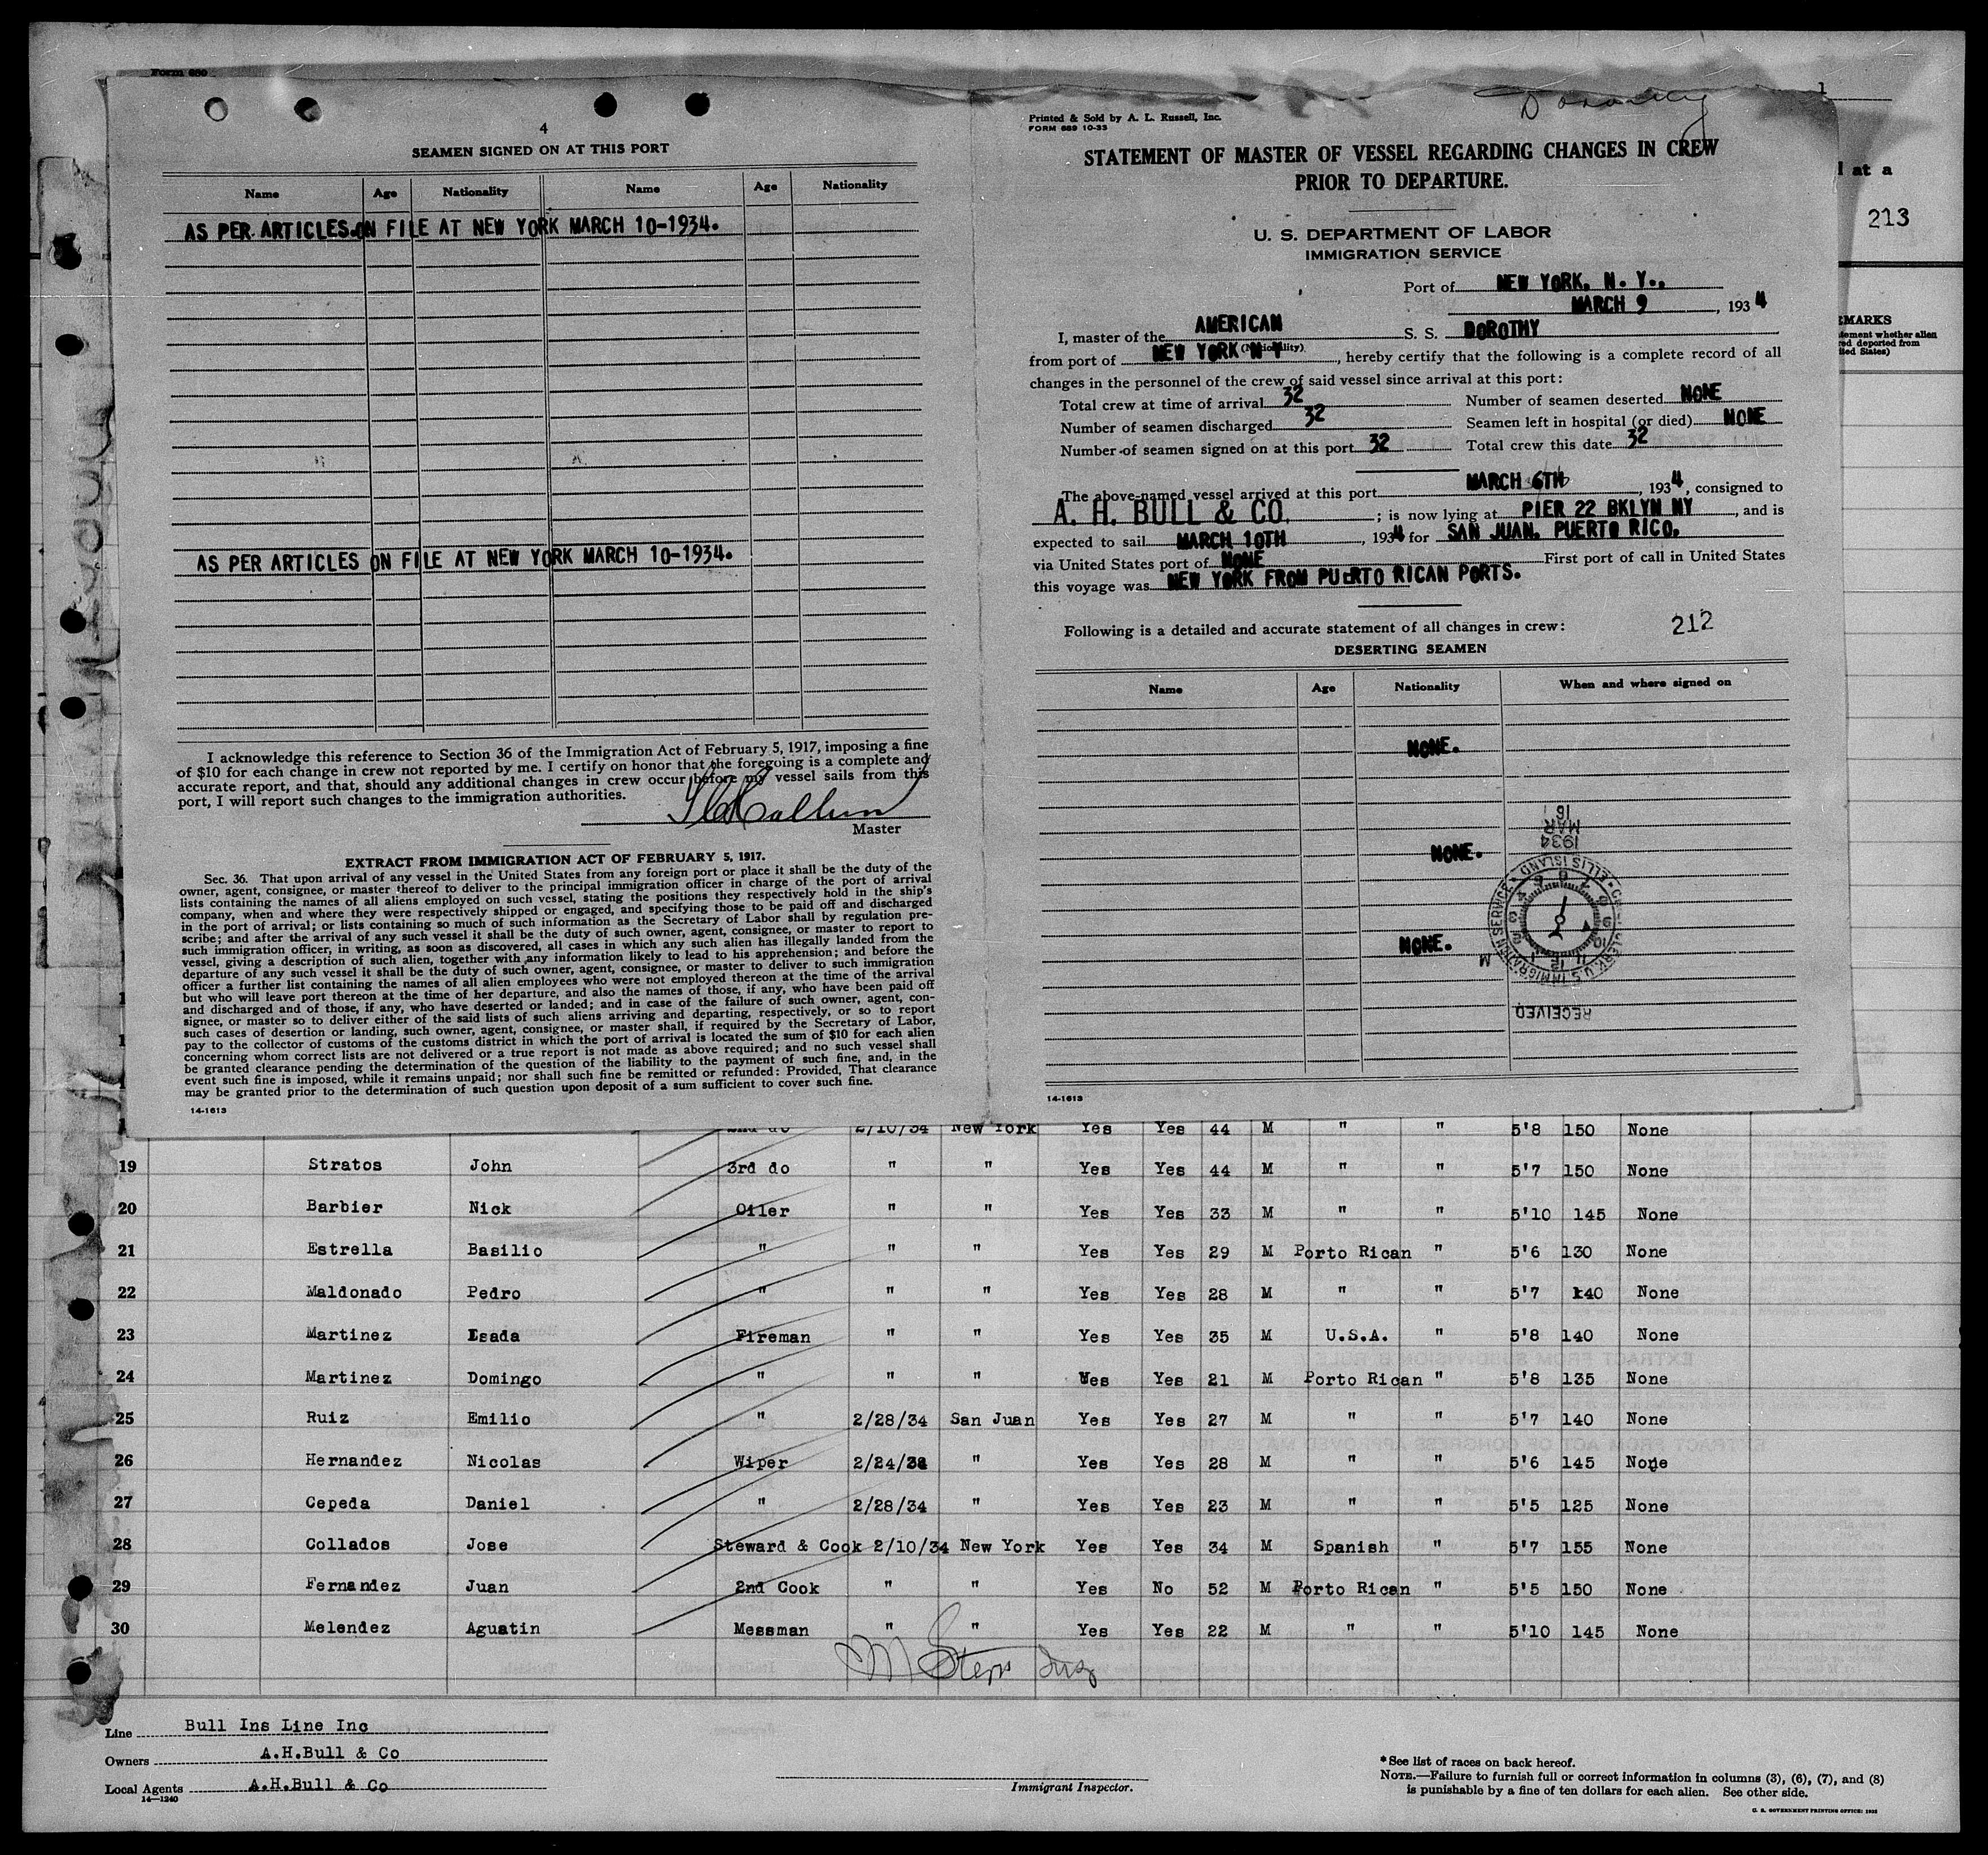 Form 680
4
SEAMEN SIGNED ON AT THIS PORT
Name Age Nationality Name Age Nationality
AS PER ARTICLES ON FILE AT NEW YORK MARCH 10-1934.
AS PER ARTICLES ON FILE AT NEW YORK MARCH 10-1934.
I acknowledge this reference to Section 36 of the Immigration Act of February 5, 1917, imposing a fine
of $10 for each change in crew not reported by me. I certify on honor that the foregoing is a complete and
accurate report, and that, should any additional changes in crew occur before my vessel sails from this
port, I will report such changes to the immigration authorities.
Master
EXTRACT FROM IMMIGRATION ACT OF FEBRUARY 5, 1917.
Sec. 36. That upon arrival of any vessel in the United States from any foreign port or place it shall be the duty of the
owner, agent, consignee, or master thereof to deliver to the principal immigration officer in charge of the port of arrival
lists containing the names of all aliens employed on such vessel, stating the positions they respectively hold in the ship's
company, when and where they were respectively shipped or engaged, and specifying those to be paid off and discharged
in the port of arrival; or lists containing so much of such information as the Secretary of Labor shall by regulation pre-
scribe; and after the arrival of any such vessel it shall be the duty of such owner, agent, consignee, or master to report to
such immigration officer, in writing, as soon as discovered, all cases in which any such alien has illegally landed from the
vessel, giving a description of such alien, together with any information likely to lead to his apprehension; and before the
departure of any such vessel it shall be the duty of such owner, agent, consignee, or master to deliver to such immigration
officer a further list containing the names of all alien employees who were not employed thereon at the time of the arrival
but who will leave port thereon at the time of her departure, and also the names of those, if any, who have been paid off
and discharged and of those, if any, who have deserted or landed; and in case of the failure of such owner, agent, con-
signee, or master so to deliver either of the said lists of such aliens arriving and departing, respectively, or so to report
such cases of desertion or landing, such owner, agent, consignee, or master shall, if required by the Secretary of Labor,
pay to the collector of customs of the customs district in which the port of arrival is located the sum of $10 for each alien
concerning whom correct lists are not delivered or a true report is not made as above required; and no such vessel shall
be granted clearance pending the determination of the question of the liability to the payment of such fine, and, in the
event such fine is imposed, while it remains unpaid; nor shall such fine be remitted or refunded: Provided, That clearance
may be granted prior to the determination of such question upon deposit of a sum sufficient to cover such fine.
14-1613
Dorothy
Printed & Sold by A. L. Russell, Inc.
FORM 689 10-33
STATEMENT OF MASTER OF VESSEL REGARDING CHANGES IN CREW
PRIOR TO DEPARTURE.
U. S. DEPARTMENT OF LABOR
IMMIGRATION SERVICE
Port of NEW YORK, N. Y.,
MARCH 9, 1934
I, master of the AMERICAN S. S. DOROTHY
(Nationality)
from port of NEW YORK N Y, hereby certify that the following is a complete record of all
changes in the personnel of the crew of said vessel since arrival at this port:
Total crew at time of arrival 32 Number of seamen deserted NONE
Number of seamen discharged 32 Seamen left in hospital (or died) NONE
Number of seamen signed on at this port 32 Total crew this date 32
The above-named vessel arrived at this port MARCH 6TH, 1934, consigned to
A. H. BULL & CO. ; is now lying at PIER 22 BKLYN NY, and is
expected to sail MARCH 10TH, 1934 for SAN JUAN, PUERTO RICO.
via United States port of NONE First port of call in United States
this voyage was NEW YORK FROM PUERTO RICAN PORTS.
Following is a detailed and accurate statement of all changes in crew: 212
DESERTING SEAMEN
Name Age Nationality When and where signed on
NONE.
NONE.
NONE.
RECEIVED
1934 MAR 16
14-1613
1
l at a
213
EMARKS
tement whether alien
red deported from
ited States)
2nd do 2/10/34 New York Yes Yes 44 M " " 5'8 150 None
19 Stratos John 3rd do " " Yes Yes 44 M " " 5'7 150 None
20 Barbier Nick Oiler " " Yes Yes 33 M " " 5'10 145 None
21 Estrella Basilio " " " Yes Yes 29 M Porto Rican " 5'6 130 None
22 Maldonado Pedro " " " Yes Yes 28 M " " 5'7 140 None
23 Martinez Esada Fireman " " Yes Yes 35 M U.S.A. " 5'8 140 None
24 Martinez Domingo " " " Yes Yes 21 M Porto Rican " 5'8 135 None
25 Ruiz Emilio " 2/28/34 San Juan Yes Yes 27 M " " 5'7 140 None
26 Hernandez Nicolas Wiper 2/24/34 " Yes Yes 28 M " " 5'6 145 None
27 Cepeda Daniel " 2/28/34 " Yes Yes 23 M " " 5'5 125 None
28 Collados Jose Steward & Cook 2/10/34 New York Yes Yes 34 M Spanish " 5'7 155 None
29 Fernandez Juan 2nd Cook " " Yes No 52 M Porto Rican " 5'5 150 None
30 Melendez Agustin Messman " " Yes Yes 22 M " " 5'10 145 None
Line Bull Ins Line Inc
Owners A.H.Bull & Co
Local Agents A.H.Bull & Co
14-1240
Immigrant Inspector.
*See list of races on back hereof.
NOTE.—Failure to furnish full or correct information in columns (3), (6), (7), and (8)
is punishable by a fine of ten dollars for each alien. See other side.
U. S. GOVERNMENT PRINTING OFFICE: 1932